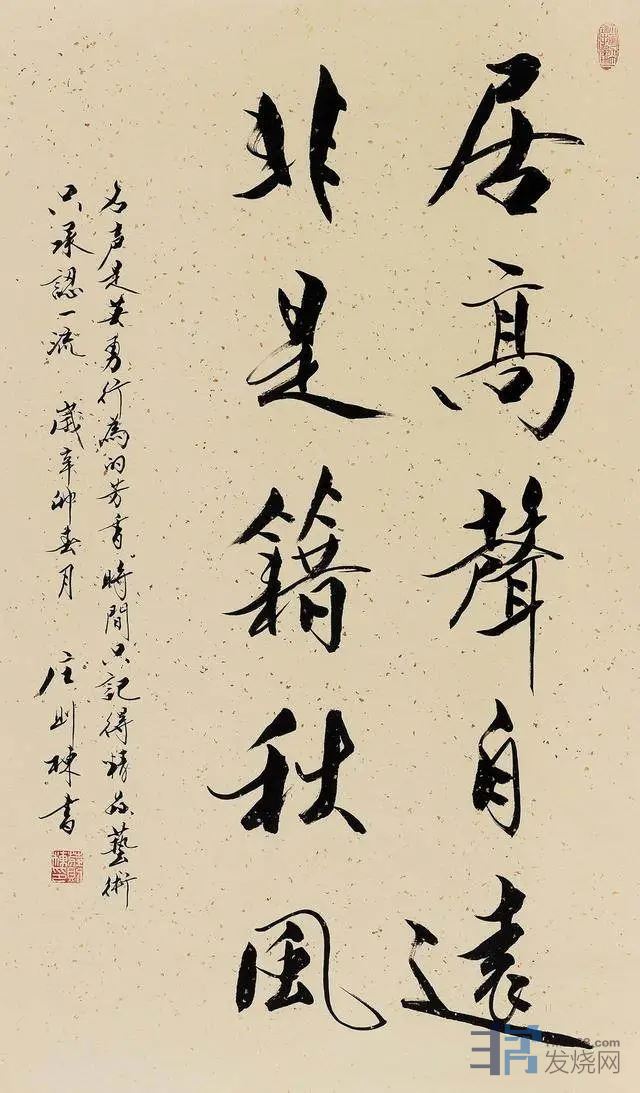 居高聲自遠
非是籍秋風
名声是英勇行為的芳香時間只記得精品藝術
只承認一流 歲辛卯春月 庄则棟書
发烧网